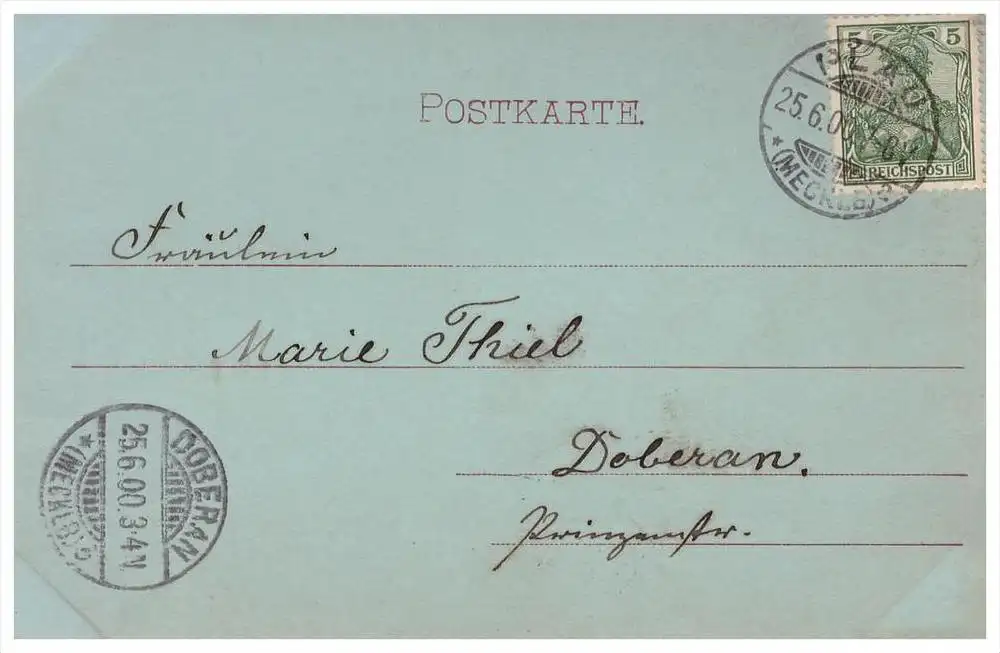 POSTKARTE.
5 5
REICHSPOST
PLAU
25.6.00.
* (MECKLB)
Fräulein
Marie Thiel
Doberan.
Prinzenstr.
DOBERAN
25.6.00.3-4N.
* (MECKLB)